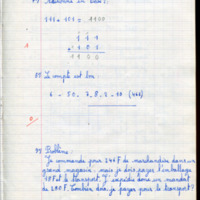 111 + 101 = 1100
1 1 1
+ 1 0 1
1 1 0 0
8°/ Le compte est bon :
6 - 50 - 7. 8. 2 - 10 (466)
9°/ Problème :
Je commande pour 246F de marchandise dans un
grand magasin. mais je dois payer l'emballage
18F et le transport. J'expédie donc un mandat
de 280F. Combien dois-je payer pour le transport ?